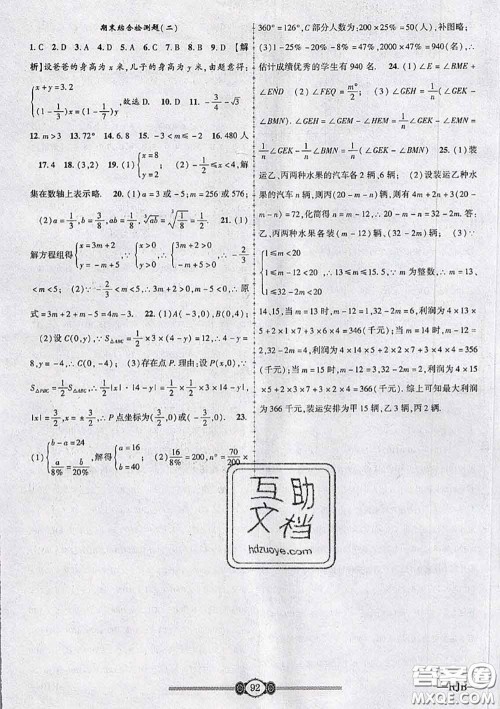 期末综合检测题(二)
1. C 2. D 3. D 4. A 5. D 6. D 7. C 8. A 9. D 【解
析】设爸爸的身高为 x 米,儿子的身高为 y 米,由题意得:
{x+y=3.2 (1-1/3)x=(1-1/4)y, 故选 D. 10. D 11. -3/4-√3
12. m>3 13. 72° 14. 6.8 15. -3<m≤-2 16. 480 人
17. 4 18. (3,2) 19. (1){x=8 y=2 (2)-1/2≤x<4,解
集在数轴上表示略. 20. (1)a=3 或-5;m=256 或 576;
(2)a=2/3,b=3/8,ab=1/8,∛ab=∛1/8=1/2 21. (1)
解方程组得{x=3m+2 y=-m+5 ∵{x>0 y>0 ∴{3m+2>0 -m+5>0 ∴-2/3
<m<5; (2)∵-2/3<m<5,∴3m+2>0,m-5<0,∴原
式=3m+2+m-5=4m-3. 22. (1)A(0,4),B(3,4);
(2)设 C(0,y),∵S△ABC=1/2×3×(4-y)=12,∴4-y=
8,y=-4,∴C(0,-4); (3)存在点 P. 理由:设
S△ABC=3/2 1/2|x|·|4-y|=1/2×3/2×3×14
|x|=3/2,x=±3/2,∴P 点坐标为(3/2,0)或(-3/2,0). 23.
(1){b-a=24 a/8%=b/20%,解得{a=16 b=40 (2)16/8%=200,n°=70/200×
360°=126°,C 部分人数为:200×25%=50(人),补图略;
(3)(1-25%-20%-8%)×2000=940(名).答:
估计成绩优秀的学生有 940 名. 24. (1)∠E=∠BME+
∠END (2)∠FEQ=m°/2; (3)∠GEH=1/n∠GEK-1/n
∠BMN=∠GEH=∠GEK-1/n∠BMN=1/n∠GEH=
1/n∠GEK-∠BMN=1/n(∠GEK-∠BMN) 25. (1)装
运乙、丙两种水果的汽车各 2 辆,6 辆; (2)设装运乙种水
果的汽车 n 辆,则丙(20-m-n)辆,∴4m+2n+3(20-m
-n)=72,化简得 n=m-12,∴20-m-n=32-2m.答:
乙、丙两种水果各装(m-12)辆,(32-2m)辆; (3)∵
{1≤m<20 1≤m-12<20, ∴13≤m≤15.5,∵m 为整数,∴m=13,
1≤32-2m<20
14,15,当 m=13 时,m-12=1,32-2m=6,利润为 4×13
×5+2×1×7+3×6×4=346(千元);当 m=14 时,m-12
=2,32-2m=4,利润为 4×14×5+2×2×7+3×4×4=356
(千元);当 m=15 时,m-12=3,32-2m=2,利润为 4×15
×5+2×3×7+3×2×4=366(千元).综上可知最大利润
为 366 千元,装运安排为甲 15 辆,乙 3 辆,丙 2 辆.
互助
文档
hdzuoye.com
92
RJB
答案圈
MXQE.COM